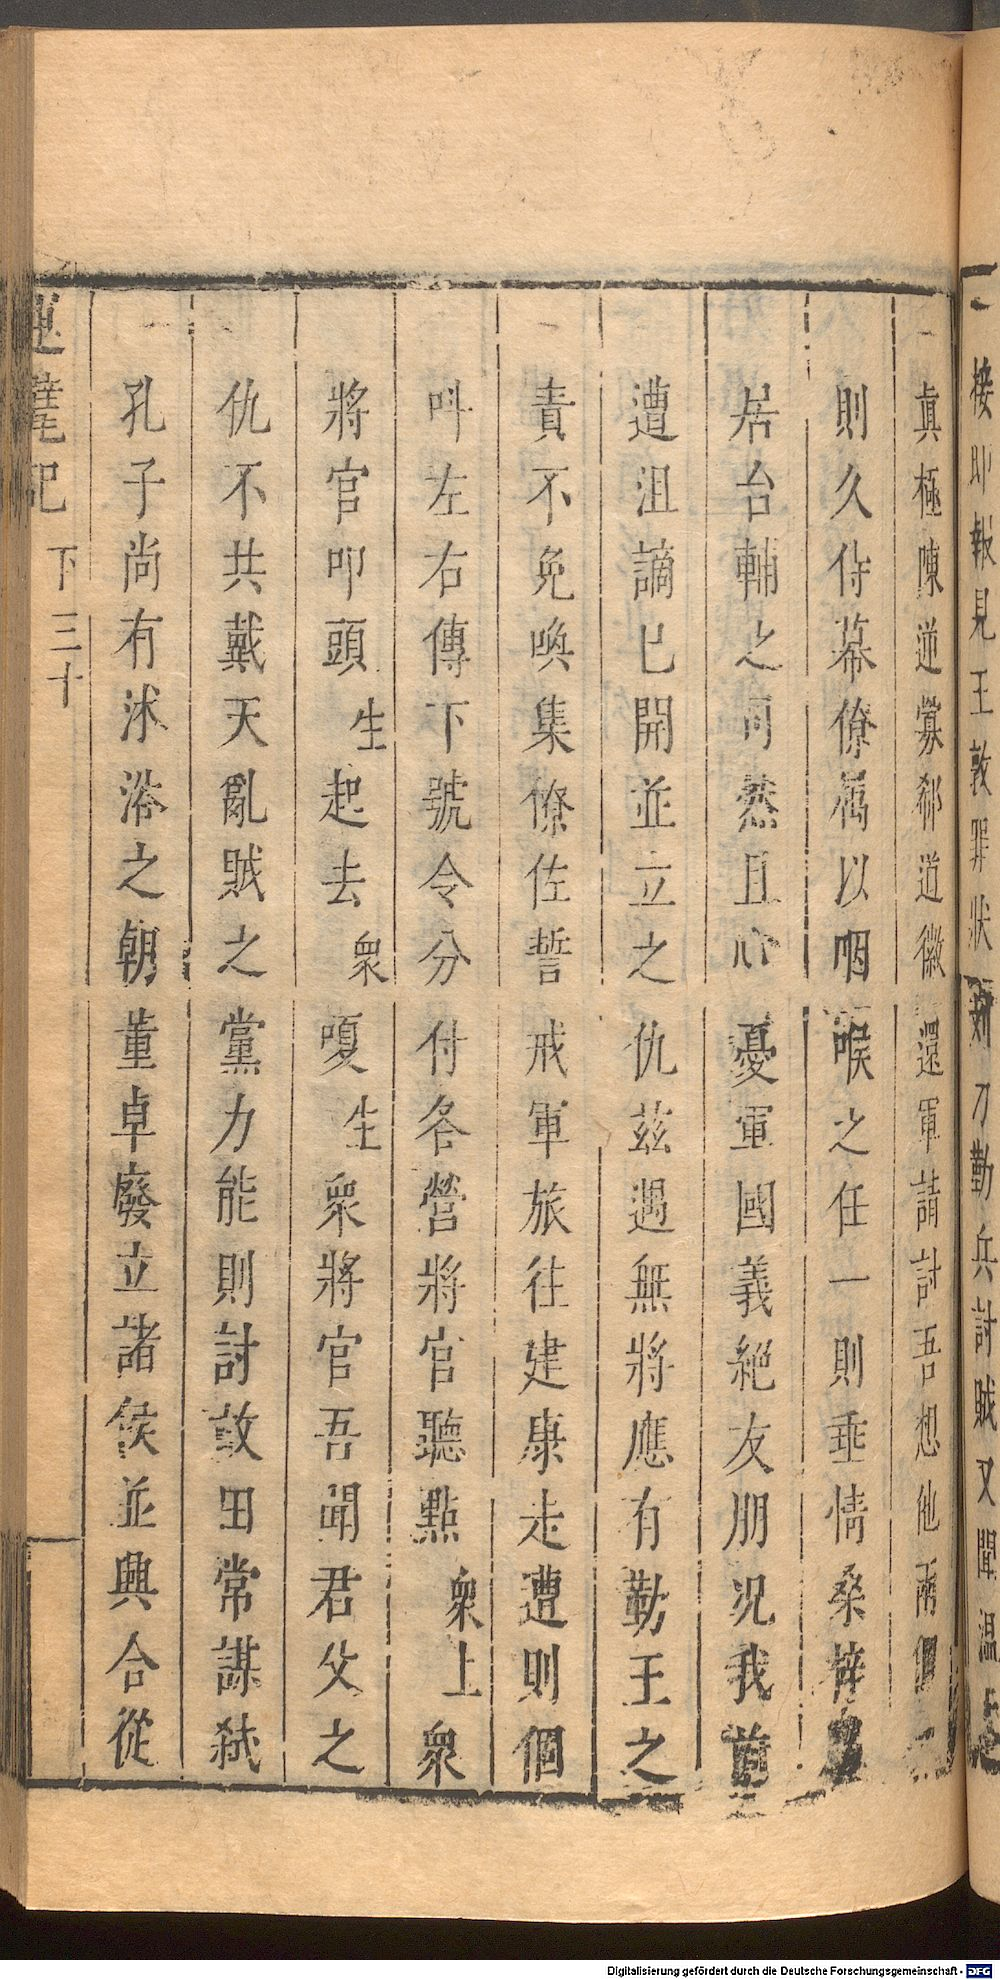 接邸報見王敦罪狀刘刁勤兵討賊又聞温
真極陳逆黨郗道徽還軍請討吾想他兩個一
則久侍幕僚属以咽喉之任一則垂情桑梓
居台輔之司然且心憂軍國義絕友朋况我前
遭沮謫已開並立之仇茲遇無將應有勤王之
責不免喚集僚佐誓戒軍旅往建康走遭則個
呌左右傳下號令分付各營將官聽點衆上衆
將官叩頭生起去衆嗄生衆將官吾聞君父之
仇不共戴天亂賊之黨力能則討故田常謀弑
孔子尚有沐浴之朝董卓廢立諸侯並興合從
運甓記 下三十
Digitalisierung gefördert durch die Deutsche Forschungsgemeinschaft - DFG